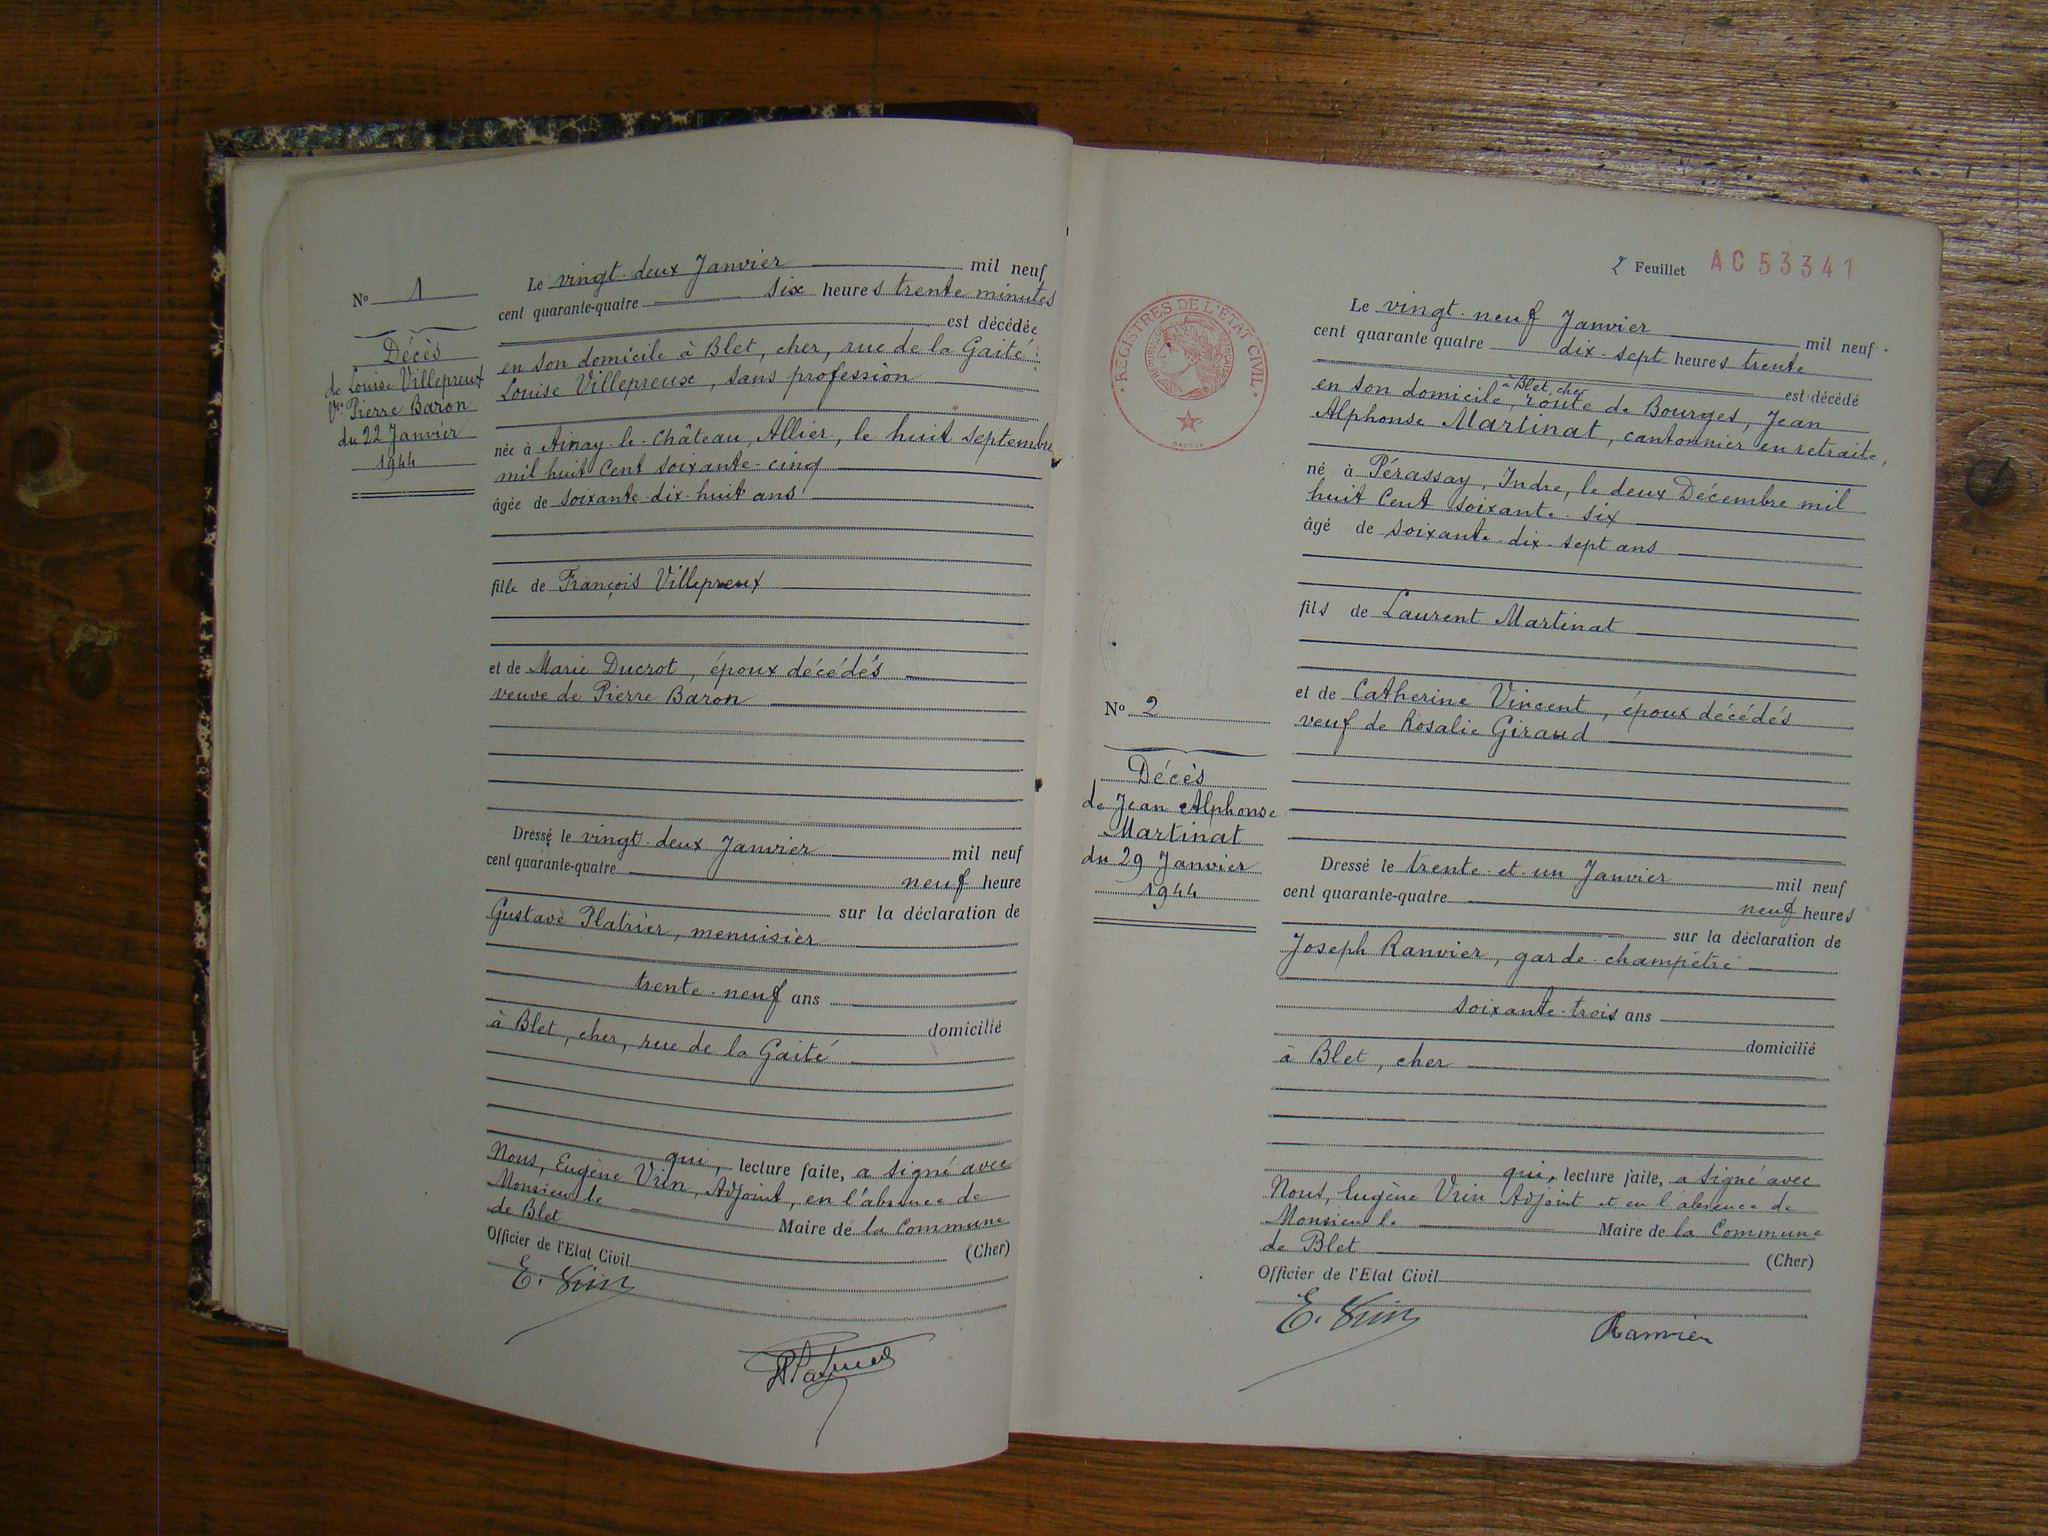 N° 1
Décès
de Louise Villepreux
Vve Pierre Baron
du 22 Janvier
1944
Le vingt-deux Janvier mil neuf
cent quarante-quatre six heures trente minutes
est décédée
en son domicile à Blet, cher, rue de la Gaité :
Louise Villepreux, sans profession
née à Ainay-le-Château, Allier, le huit septembre
mil huit Cent soixante-cinq
âgée de soixante-dix-huit ans
fille de François Villepreux
et de Marie Ducrot, époux décédés
veuve de Pierre Baron
Dressé le vingt-deux Janvier mil neuf
cent quarante-quatre neuf heure
sur la déclaration de
Gustave Platrier, menuisier
trente-neuf ans
domicilié
à Blet, cher, rue de la Gaité
qui, lecture faite, a signé avec
Nous, Eugène Vrin, Adjoint, en l'absence de
Monsieur le Maire de la Commune
de Blet (Cher)
Officier de l'Etat Civil
E. Vrin
2 Feuillet AC 53341
REGISTRES DE L'ETAT CIVIL
Le vingt-neuf Janvier mil neuf
cent quarante quatre dix-sept heures trente
est décédé
en son domicile, à Blet, cher, route de Bourges, Jean
Alphonse Martinat, cantonnier en retraite,
né à Pérassay, Indre, le deux Décembre mil
huit Cent soixante-six
âgé de soixante-dix-sept ans
fils de Laurent Martinat
et de Catherine Vincent, époux décédés
veuf de Rosalie Giraud
N° 2
Décès
de Jean Alphonse
Martinat
du 29 Janvier
1944
Dressé le trente-et-un Janvier mil neuf
cent quarante-quatre neuf heures
sur la déclaration de
Joseph Ranvier, garde-champêtre
soixante-trois ans
domicilié
à Blet, cher
qui, lecture faite, a signé avec
Nous, Eugène Vrin Adjoint et en l'absence de
Monsieur le Maire de la Commune
de Blet (Cher)
Officier de l'Etat Civil
E. Vrin Ranvier